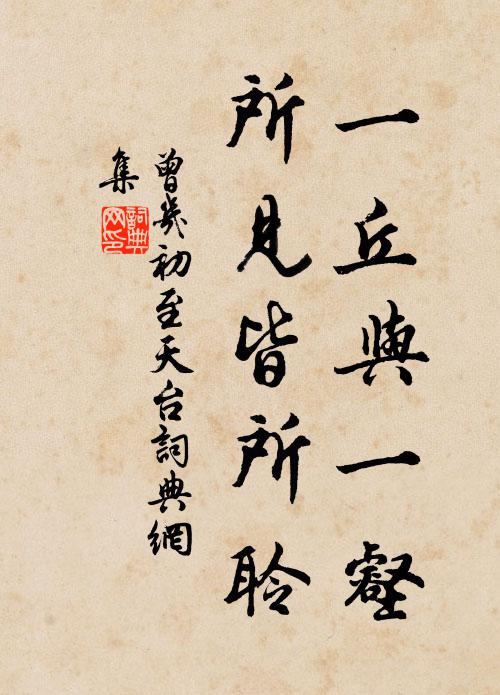 一丘與一壑
所見皆所聆
曾幾初至天台詞典網
集
詞典
网印